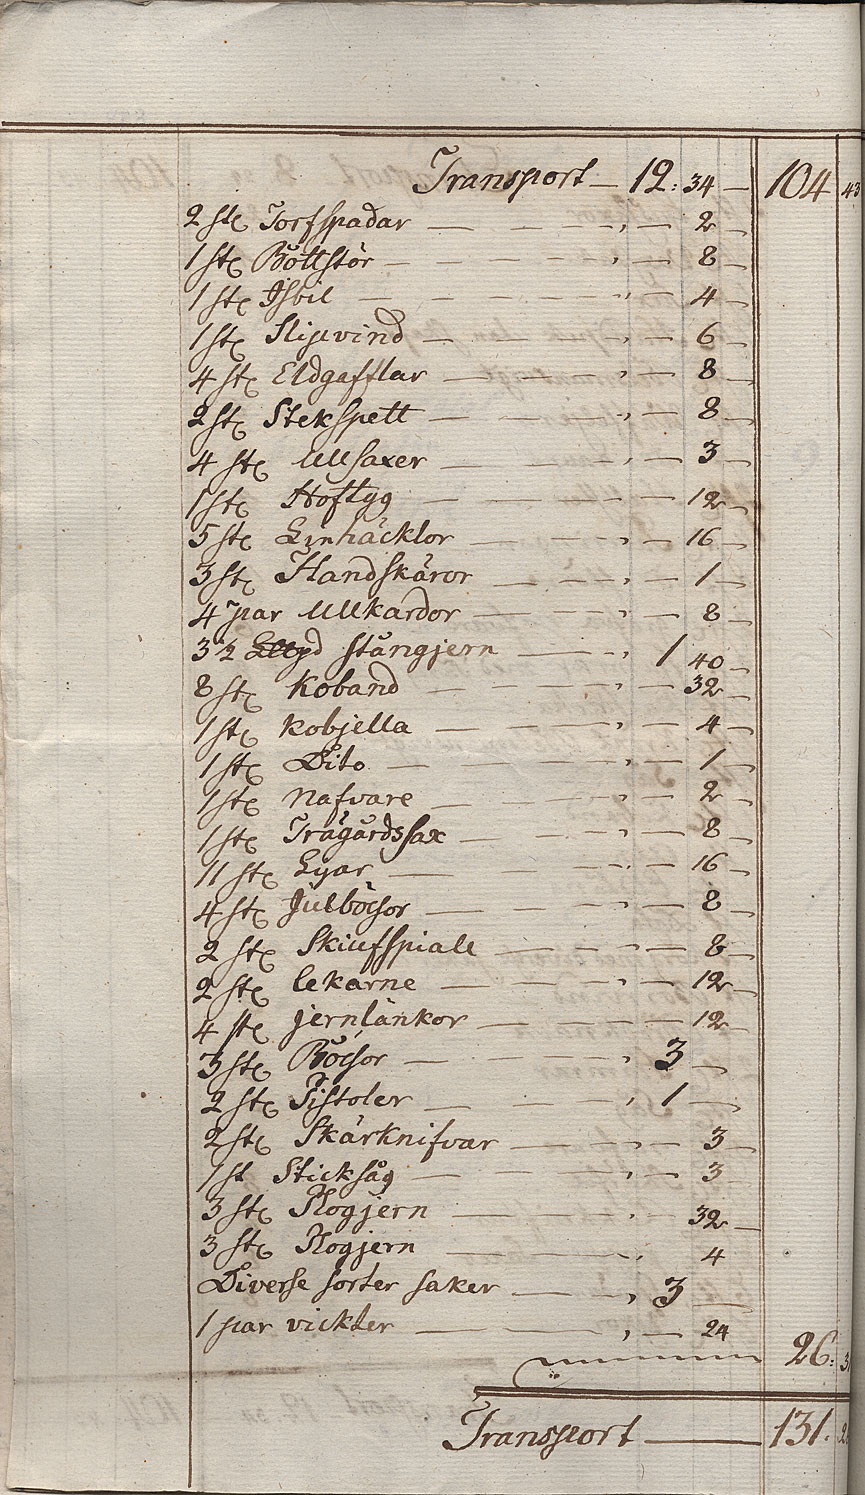 Transport — 12: 34 — 104 43
2 ste Torfspadar — — — 2 —
1 ste Böttstör — — — 8 —
1 ste Isbil — — — 4 —
1 ste Slipvind — — — 6 —
4 ste Eldgafflar — — — 8 —
2 ste Stekspett — — — 8 —
4 ste Ullsaxer — — — 3 —
1 ste Hoftyg — — — 12 —
5 ste Linhäcklor — — — 16 —
3 ste Handskäror — — — 1 —
4 par Ullkardor — — — 8 —
3 1/2 stångjern — — 1 40 —
8 ste Koband — — — 32 —
1 ste Kobjella — — — 4 —
1 ste Dito — — — 1 —
1 ste Nafvare — — — 2 —
1 ste Trägårdssax — — — 8 —
11 ste Lyar — — — 16 —
4 ste Julbösor — — — 8 —
2 ste Skiufspiäll — — — 8 —
2 ste lekarne — — — 12 —
4 ste jernlänkor — — — 12 —
3 ste Bösor — — — 3 —
2 ste Pistoler — — — 1 —
2 ste Skärknifvar — — — 3 —
1 st Sticksåg — — — 3
3 ste Plogjern — — — 32 —
3 ste Plogjern — — — 4
Diverse sorter saker — — 3 —
1 par vickter — — — 24
26:
Transport — 131.